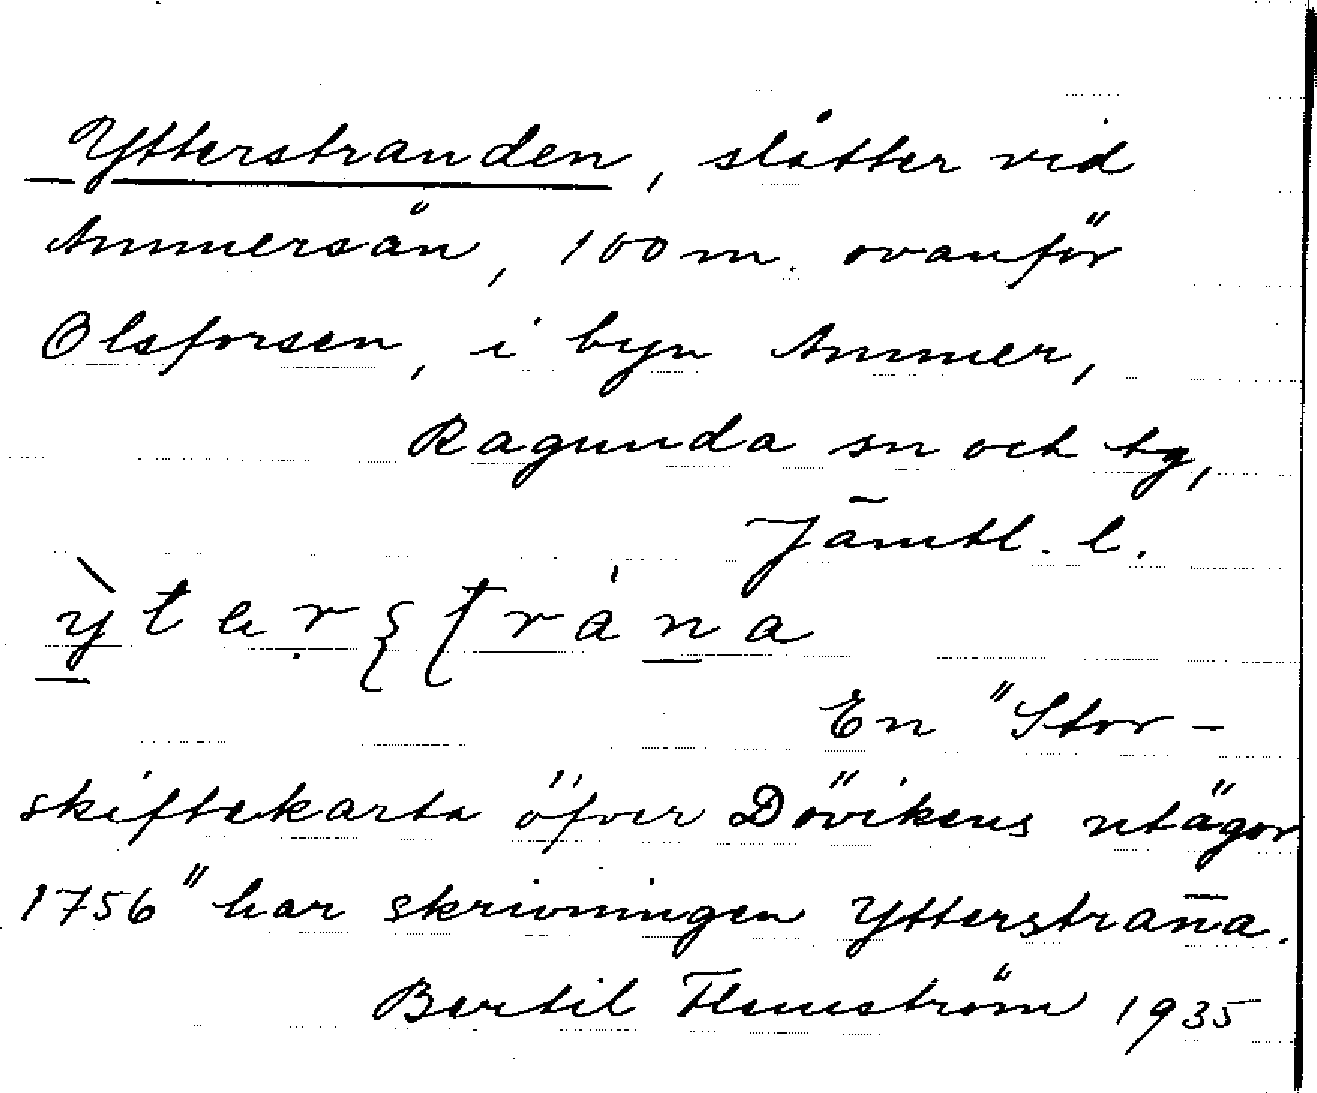 Ytterstranden, slåtter vid
Ammersån, 100 m. ovanför
Olsforsen, i byn Ammer,
Ragunda sn och tg,
Jämtl. l.
En "Stor-
skiftekarta öfver Dövikens utägor
1756" har skrivningen Ytterstran̄a.
Bertil Flemström 1935